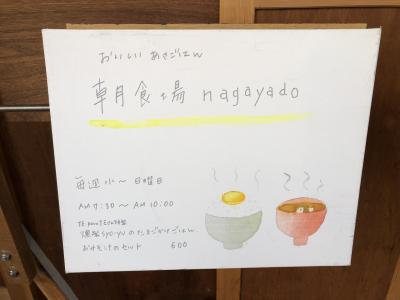 おいしい あさごはん
朝食場 nagayado
毎週水〜日曜日
AM 7:30 〜 AM 10:00
のたまごかけごはん
おみそ汁のセット 600